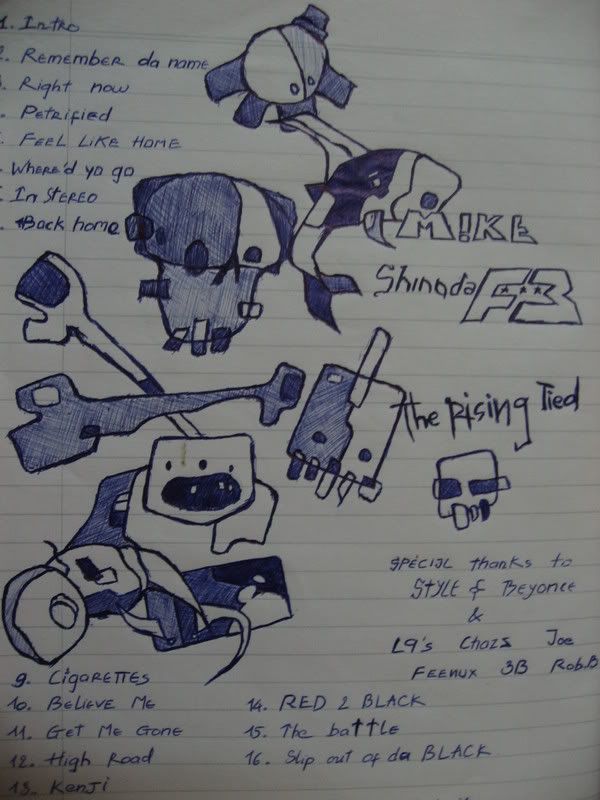 1. Intro
2. Remember da name
3. Right now
. Petrified
. FEEL LIKE HOME
. Where'd yo go
. In STEREO
. Back home
M!KE
Shinoda
The Rising Tied
SPECIAL thanks to
STYLE & BEYONCE
&
L9's Chozs Joe
FEENUX 3B Rob.B
9. CigaRETTES
10. BELIEVE ME
11. GET ME GONE
12. High Road
13. KENJI
14. RED 2 BLACK
15. The baTTLE
16. Slip out of da BLACK